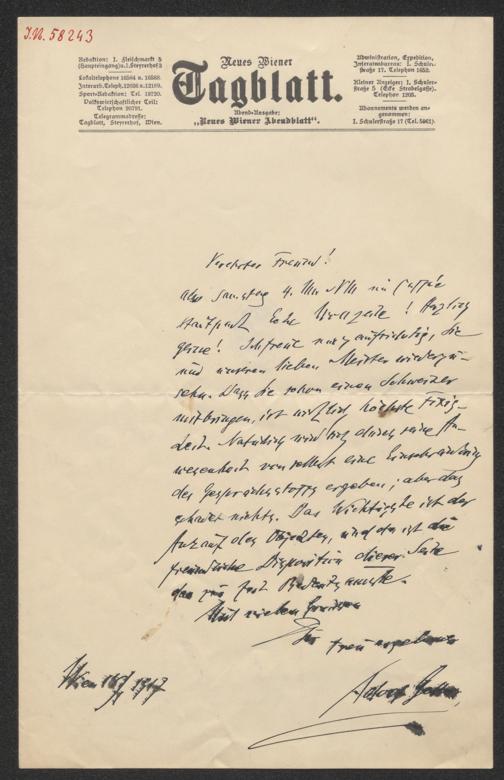 I.N. 58243
Redaktion: I. Fleischmarkt 5
(Haupteingang) u. I. Steyrerhof 3
Lokaltelephone 16584 u. 16588.
Interurb. Teleph. 12036 u. 12189.
Sport-Redaktion: Tel. 19720.
Volkswirtschaftlicher Teil:
Telephon 20791.
Telegrammadresse:
Tagblatt, Steyrerhof, Wien.
Neues Wiener
Tagblatt.
Abend-Ausgabe:
„Neues Wiener Abendblatt“.
Administration, Expedition,
Inseratenbureau: I. Schuler-
straße 17. Telephon 1652.
Kleiner Anzeiger: I. Schuler-
straße 5 (Ecke Strobelgasse).
Telephon 1205.
Abonnements werden an-
genommen:
I. Schulerstraße 17 (Tel. 5961).
Verehrter Freund!
Also Samstag 4. Uhr NM im Caffée
Ecke Wollzeile! Herzlich
gerne! Ich freue mich aufrichtig, Sie
und unseren lieben Meister wiederzu-
sehn. Dass Sie schon einen Schweizer
mitbringen, ist wirklich höchste
Natürlich wird sich durch seine An-
wesenheit von selbst eine Einschränkung
des Gesprächsstoffs ergeben; aber das
schadet nichts. Das Wichtigste ist der
des Objektes, und da ist die
freundliche Disposition dieser Seite
Mit vielen Grüssen
Ihr treu ergebener
Wien 1917